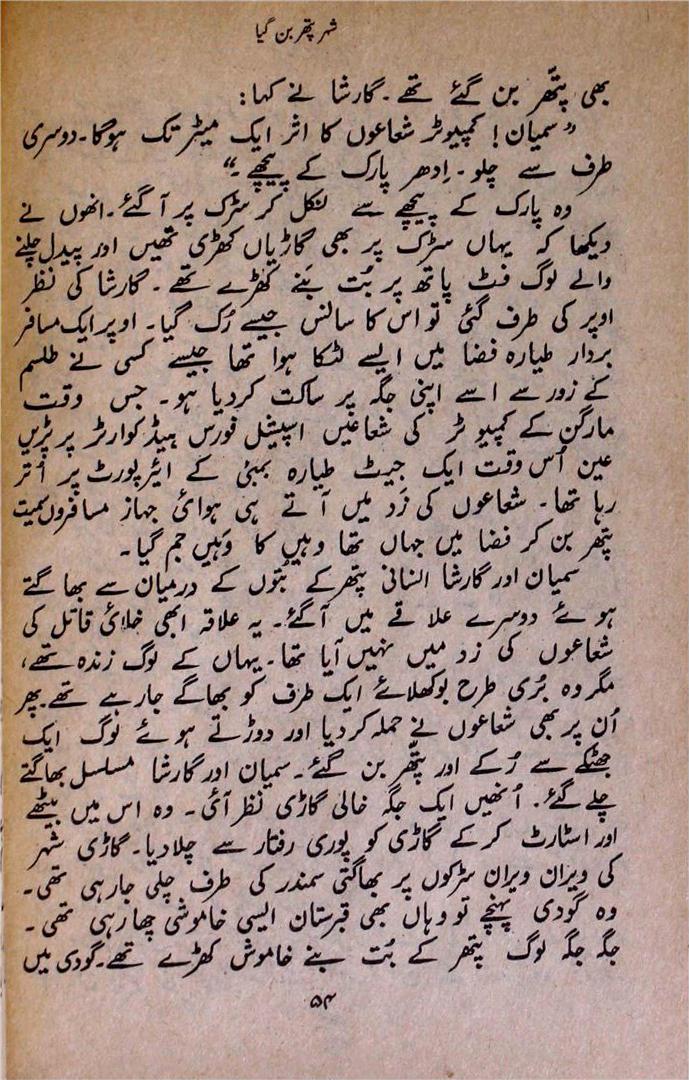 شہر پتھر بن گیا
بھی پتّھر بن گئے تھے۔ گارشا نے کہا:
”سمیان! کمپیوٹر شعاعوں کا اثر ایک میٹر تک ہوگا۔ دوسری
طرف سے چلو۔ اِدھر پارک کے پیچھے۔“
وہ پارک کے پیچھے سے نکل کر سڑک پر آ گئے۔ انھوں نے
دیکھا کہ یہاں سڑک پر بھی گاڑیاں کھڑی تھیں اور پیدل چلنے
والے لوگ فٹ پاتھ پر بُت بنے کھڑے تھے۔ گارشا کی نظر
اوپر کی طرف گئی تو اس کا سانس جیسے رُک گیا۔ اوپر ایک مسافر
بردار طیارہ فضا میں ایسے لٹکا ہوا تھا جیسے کسی نے طلسم
کے زور سے اسے اپنی جگہ پر ساکت کر دیا ہو۔ جس وقت
مارگن کے کمپیوٹر کی شعاعیں اسپیشل فورس ہیڈ کوارٹر پر پڑیں
عین اُس وقت ایک جیٹ طیارہ بمبئی کے ایئرپورٹ پر اُتر
رہا تھا۔ شعاعوں کی زَد میں آتے ہی ہوائی جہاز مسافروں سمیت
پتھر بن کر فضا میں جہاں تھا وہیں کا وَہیں جم گیا۔
سمیان اور گارشا انسانی پتھر کے بُتوں کے درمیان سے بھاگتے
ہوئے دوسرے علاقے میں آ گئے۔ یہ علاقہ ابھی خلائی قاتل کی
شعاعوں کی زد میں نہیں آیا تھا۔ یہاں کے لوگ زندہ تھے،
مگر وہ بُری طرح بوکھلائے ایک طرف کو بھاگے جا رہے تھے۔ پھر
اُن پر بھی شعاعوں نے حملہ کر دیا اور دوڑتے ہوئے لوگ ایک
جھٹکے سے رُکے اور پتّھر بن گئے۔ سمیان اور گارشا مسلسل بھاگتے
چلے گئے۔ اُنھیں ایک جگہ خالی گاڑی نظر آئی۔ وہ اس میں بیٹھے
اور اسٹارٹ کر کے گاڑی کو پوری رفتار سے چلا دیا۔ گاڑی شہر
کی ویران ویران سڑکوں پر بھاگتی سمندر کی طرف چلی جا رہی تھی۔
وہ گودی پہنچے تو وہاں بھی قبرستان ایسی خاموشی چھا رہی تھی۔
جگہ جگہ لوگ پتھر کے بُت بنے خاموش کھڑے تھے۔ گودی میں
۵۴